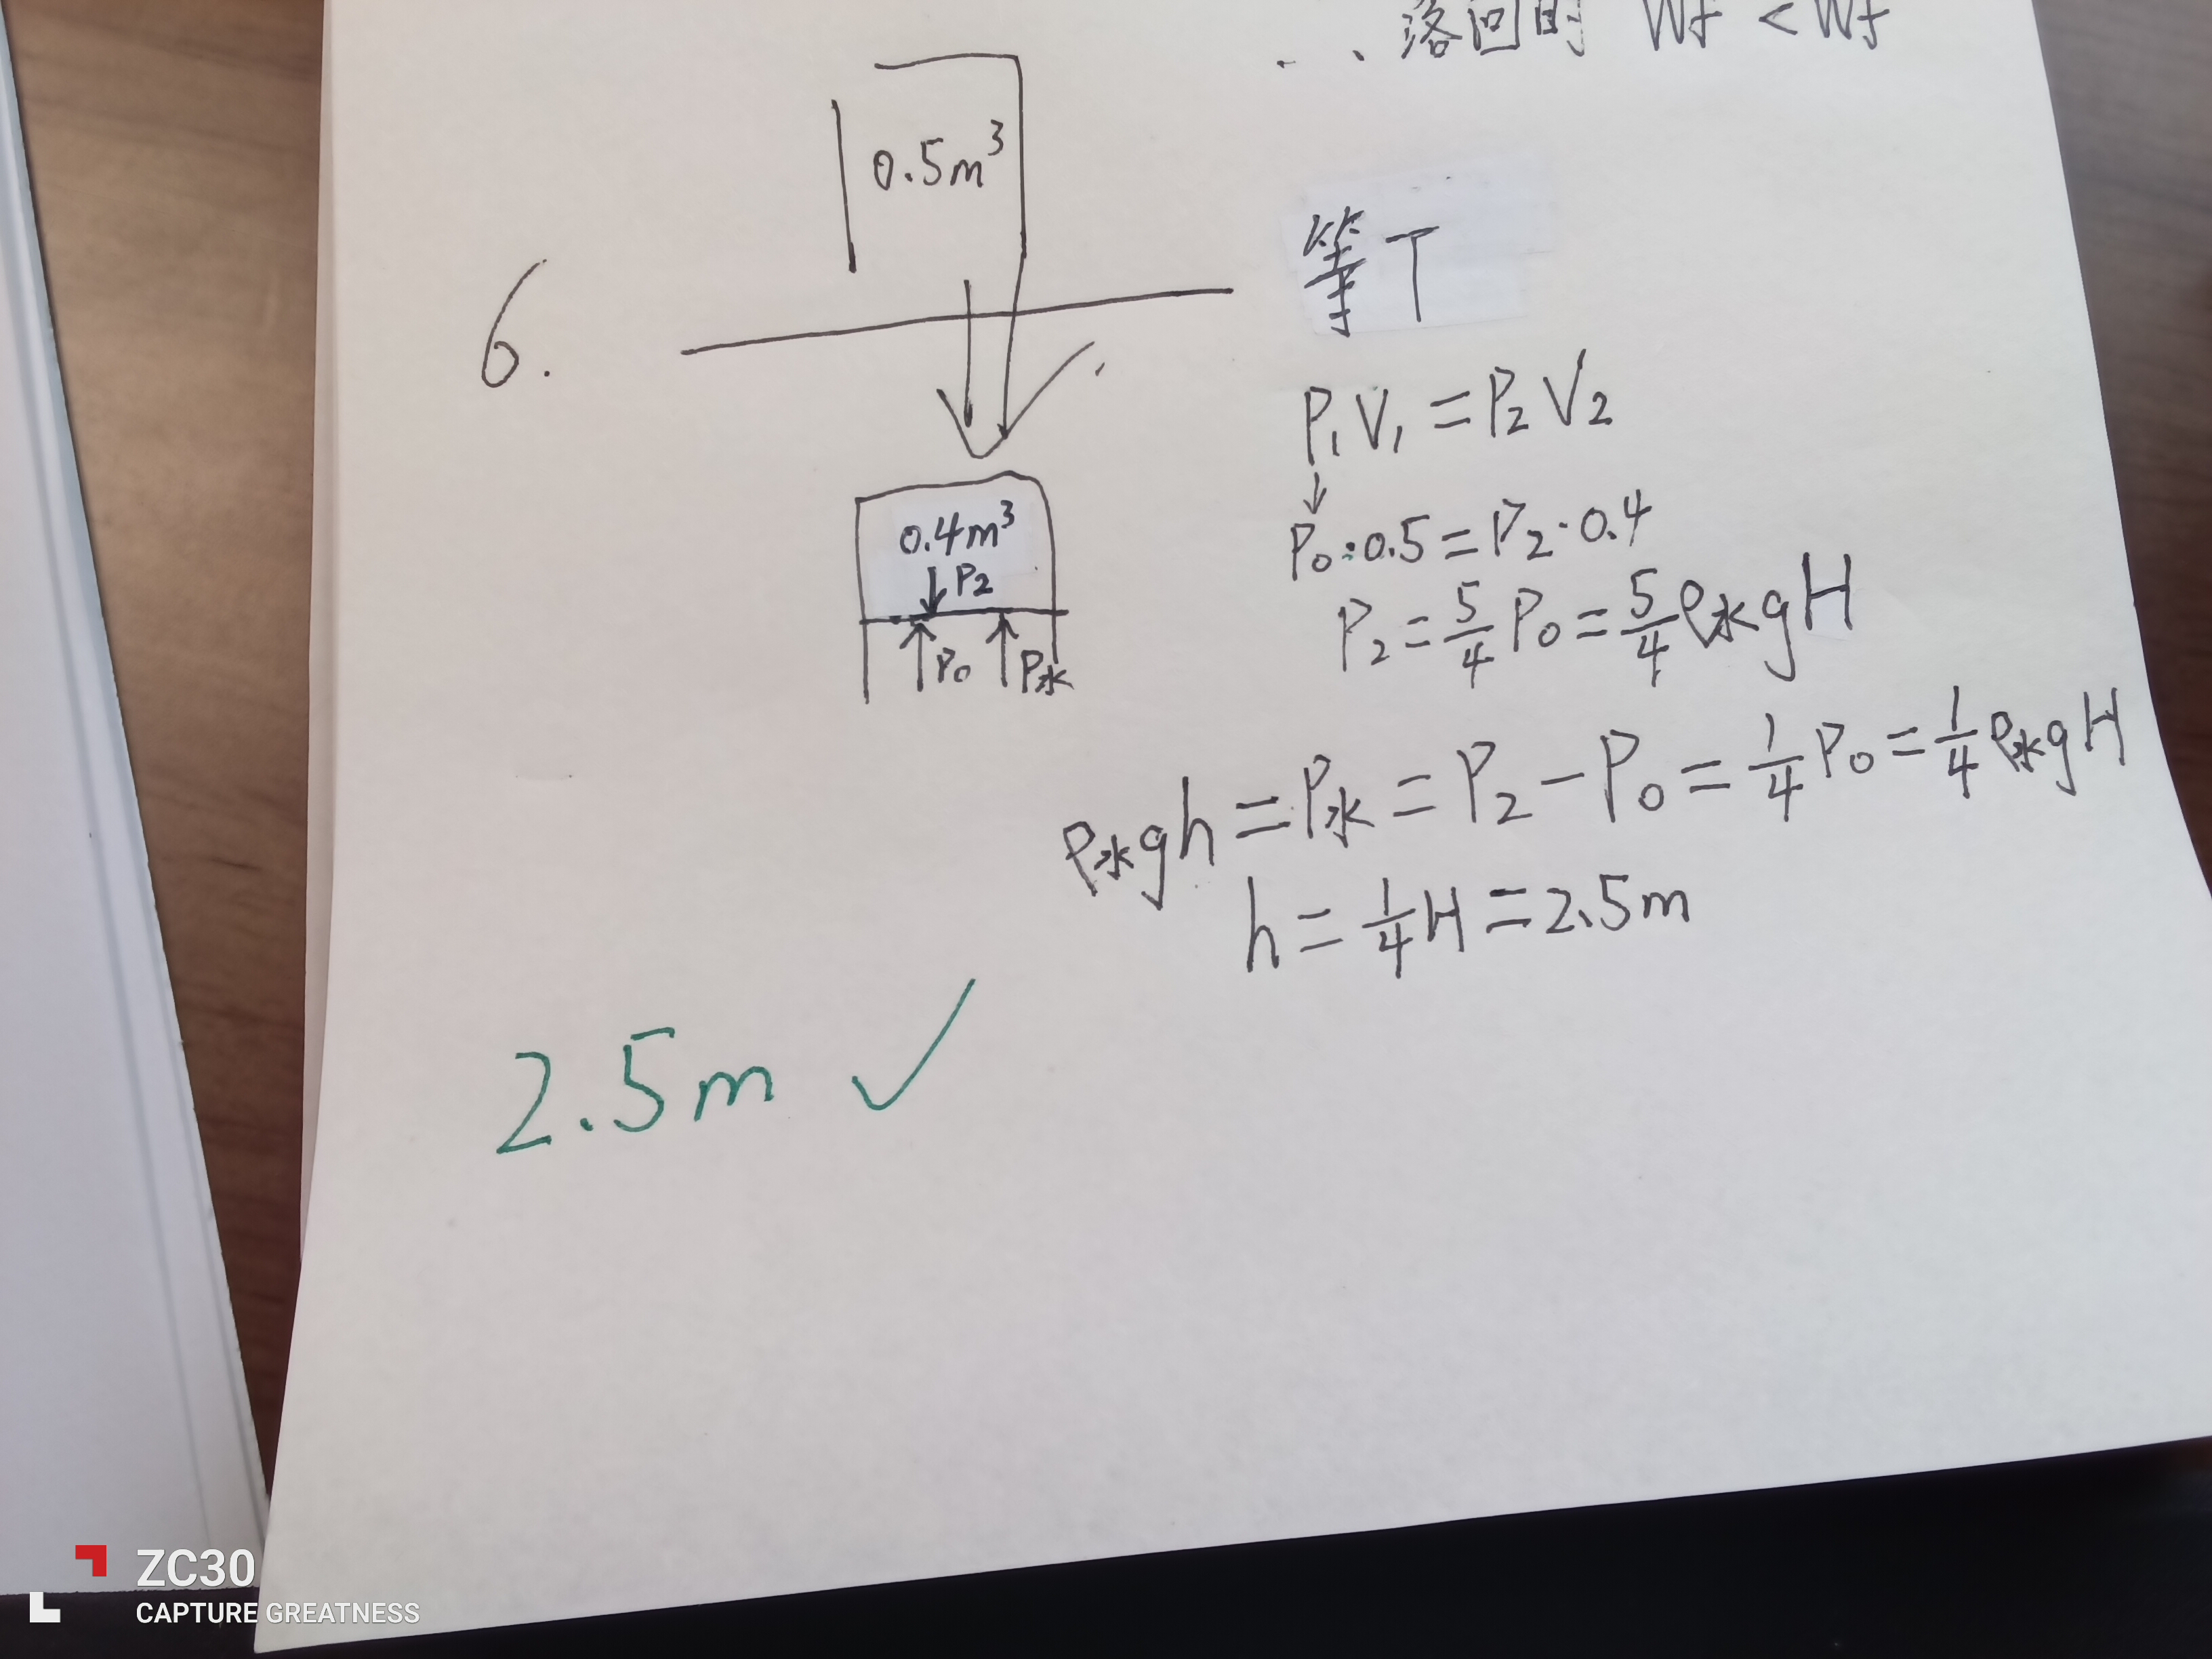 落回时 Wf < Wf
0.5m³
6.
等T
P₁V₁=P₂V₂
↓
P₀·0.5=P₂·0.4
0.4m³
↓P₂
P₂=5/4 P₀=5/4 ρ水gH
↑P₀ ↑P水
ρ水gh=P水=P₂-P₀=1/4 P₀=1/4 ρ水gH
h=1/4 H=2.5m
2.5m ✓
ZC30
CAPTURE GREATNESS